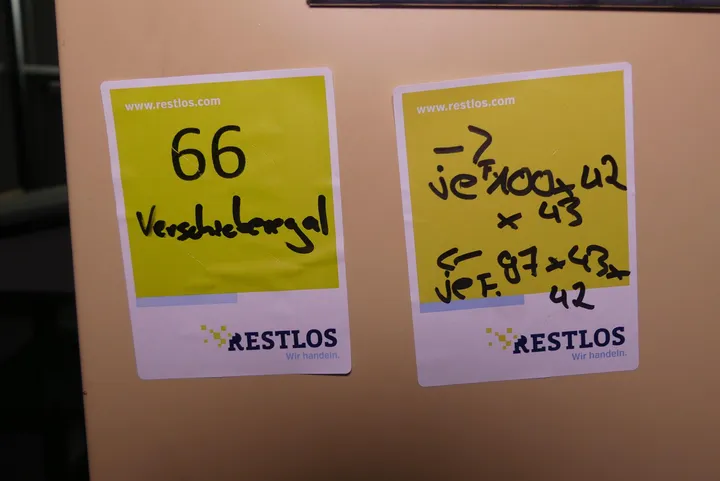 www.restlos.com
66
Verschieberegal
RESTLOS
Wir handeln.
www.restlos.com
->
je F. 100 x 42
x 43
<-
je F. 97 x 43 x
42
RESTLOS
Wir handeln.